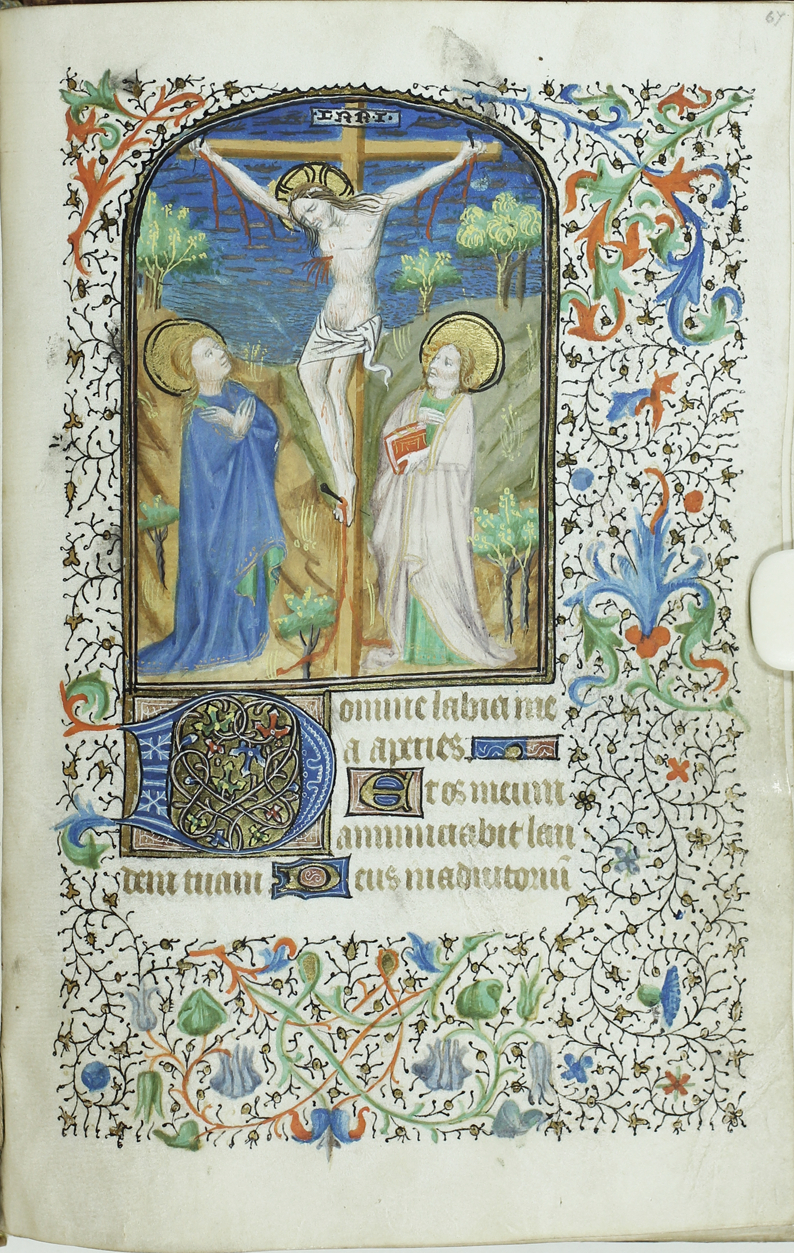 67
INRI
Domine labia me
a aperies.
Et os meum
annunciabit lau
dem tuam Deus in adiutoriū